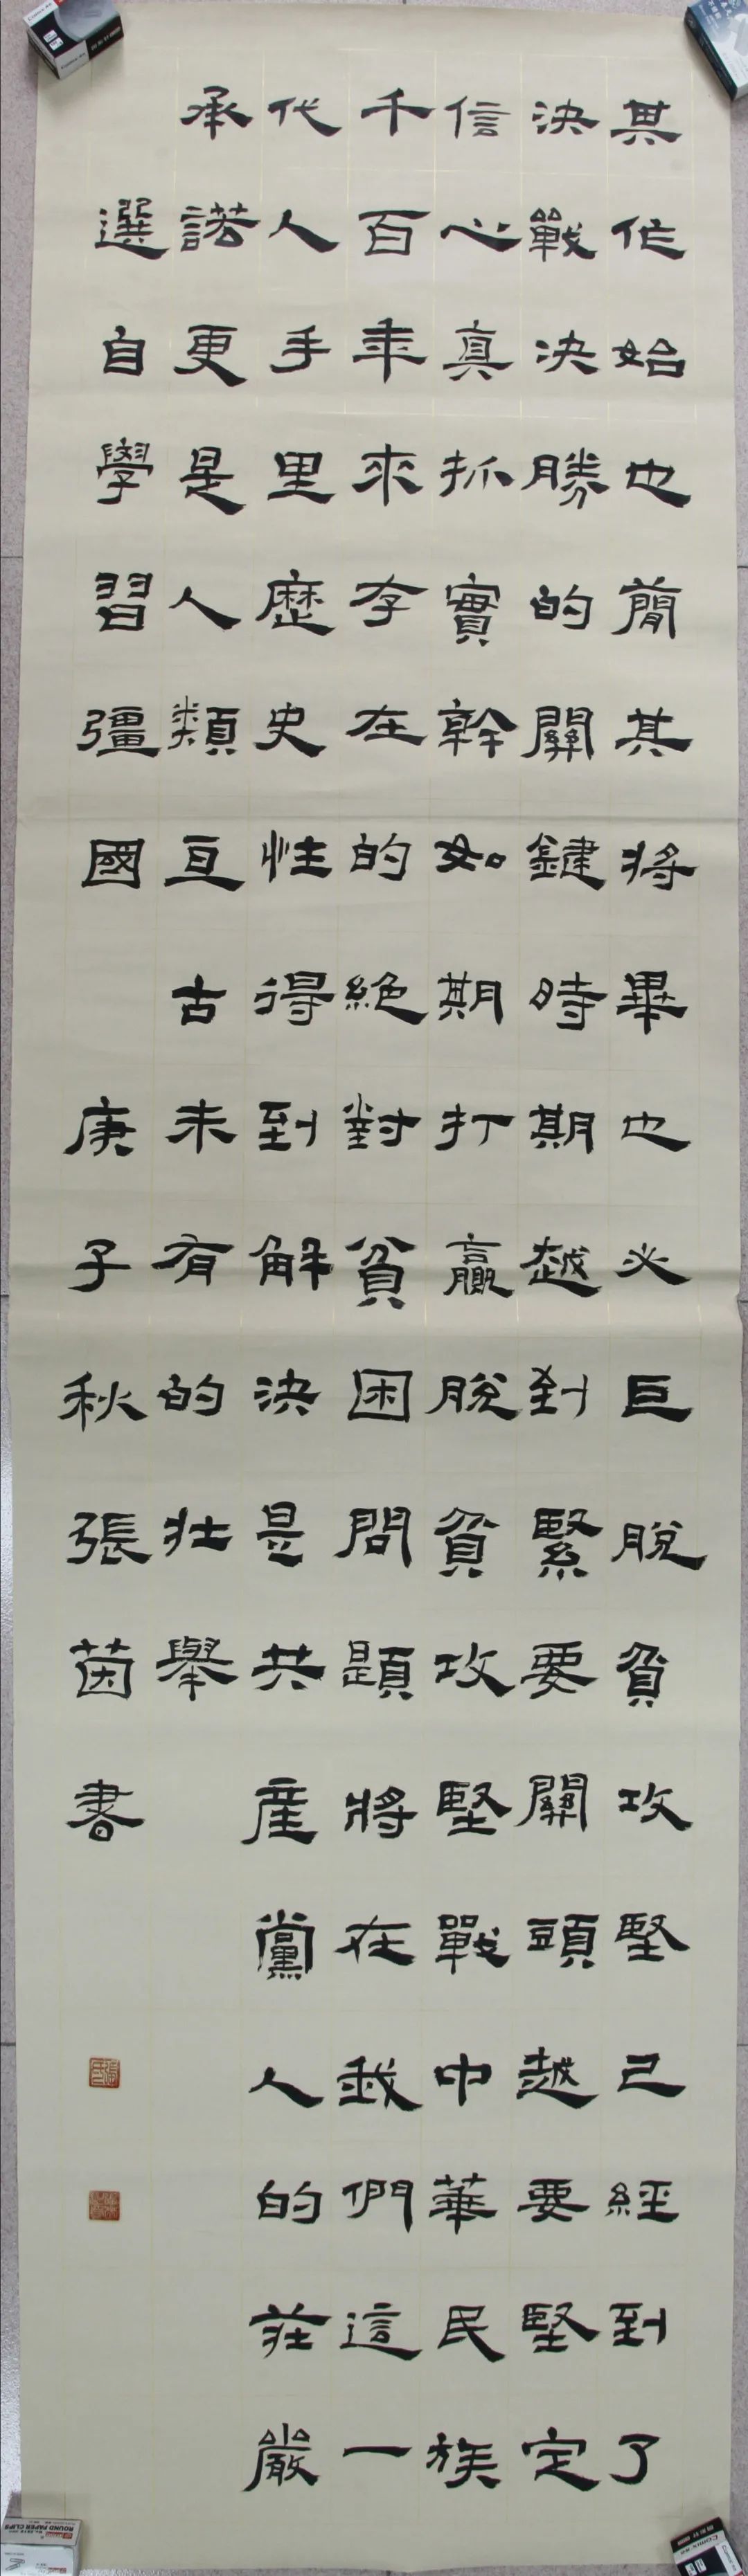 其作始也簡其將畢也必巨脫貧攻堅已經到了
決戰決勝的關鍵時期越到緊要關頭越要堅定
信心真抓實幹如期打贏脫貧攻堅戰中華民族
千百年來存在的絕對貧困問題將在我們這一
代人手里歷史性得到解決是共產黨人的莊嚴
承諾更是人類亘古未有的壯舉
選自學習彊國 庚子秋張茵書
ROUND PAPER CLIPS